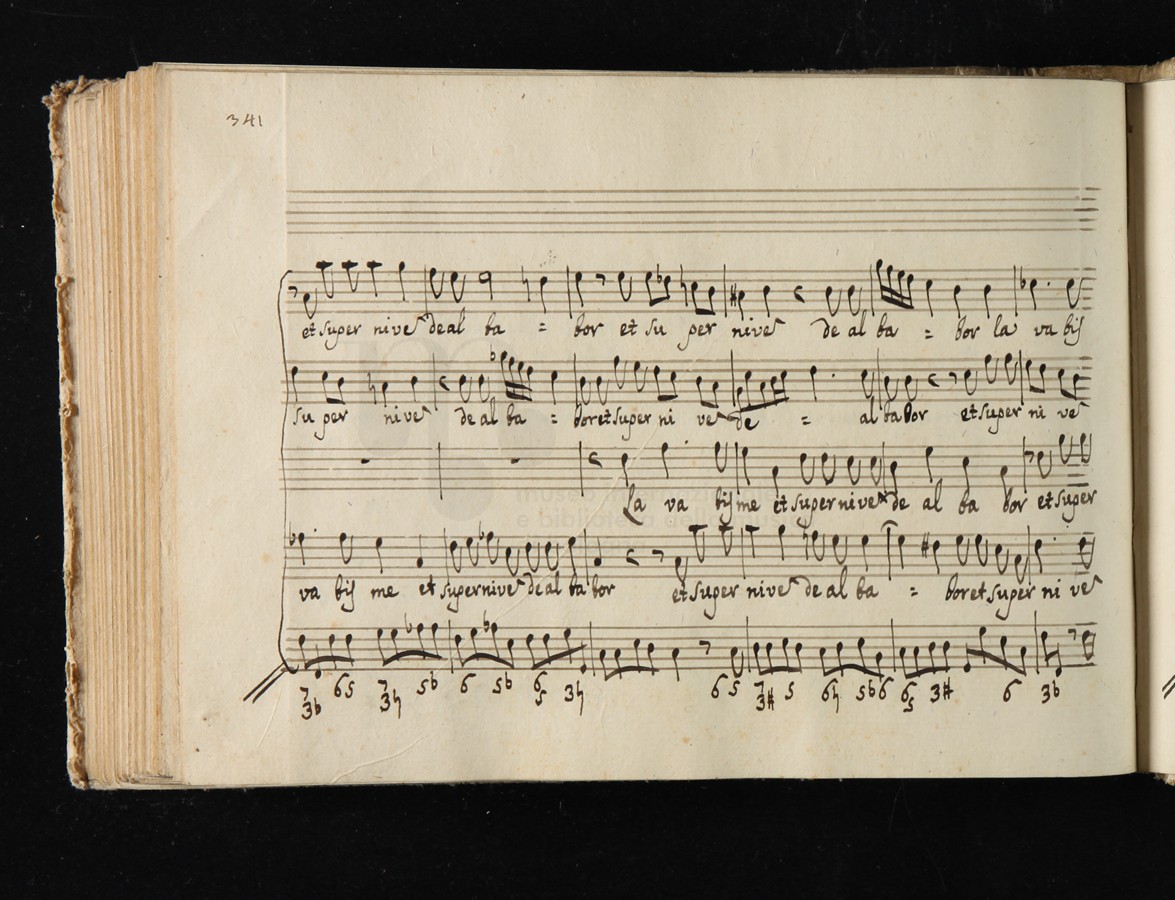 341
et super nive de al ba = bor et su per nive de al ba = bor la va bis
su per nive de al ba = bor et super ni ve de = al ba bor et super ni ve
La va bis me et super nive de al ba bor et super
va bis me et super nive de al ba bor et super nive de al ba = bor et super ni ve
7 6 5 7 5b 6 5b 6 3h 6 5 7 5 6h 5b 6 6 3# 6 3b
3b 3h 5 3# 5
museo internazionale
e biblioteca della musica